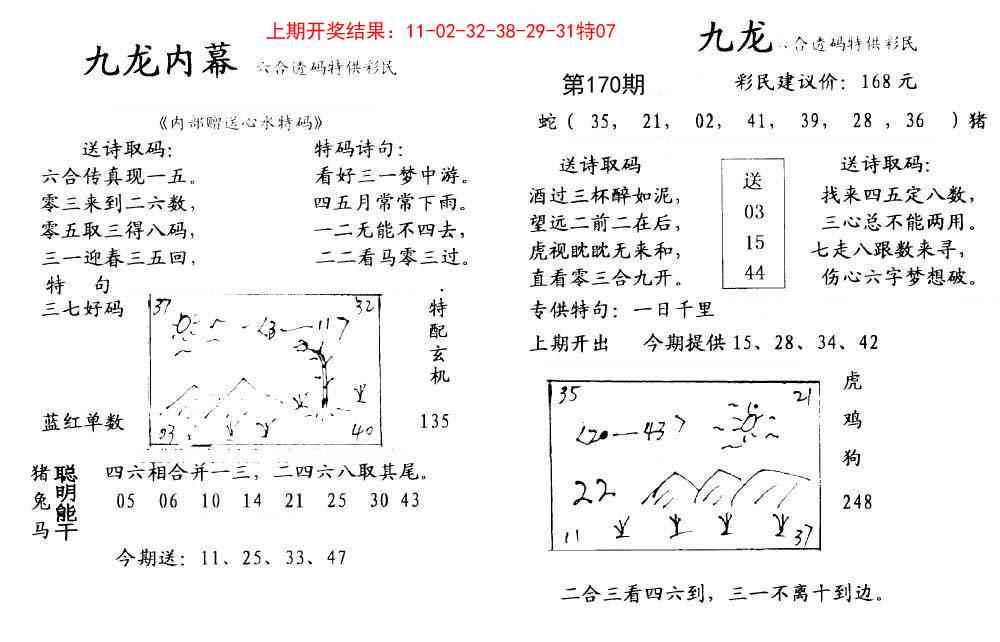 上期开奖结果：11-02-32-38-29-31特07
九龙内幕 六合透码特供彩民
《内部赠送心水特码》
送诗取码：
六合传真现一五。
零三来到二六数，
零五取三得八码，
三一迎春三五回，
特 句
三七好码
蓝红单数
特码诗句：
看好三一梦中游。
四五月常常下雨。
一二无能不四去，
二二看马零三过。
37 32
〈13—11〉
03 40
特配玄机
135
猪兔马
聪明能干
四六相合并一三，二四六八取其尾。
05 06 10 14 21 25 30 43
今期送：11、25、33、47
九龙 合透码特供彩民
第170期 彩民建议价：168元
蛇（ 35， 21， 02， 41， 39， 28 ，36 ）猪
送诗取码
酒过三杯醉如泥，
望远二前二在后，
虎视眈眈无来和，
直看零三合九开。
送
03
15
44
送诗取码：
找来四五定八数，
三心总不能两用。
七走八跟数来寻，
伤心六字梦想破。
专供特句：一日千里
上期开出 今期提供15、28、34、42
35 21
〈20—43〉
22
11 37
虎
鸡
狗
248
二合三看四六到，三一不离十到边。